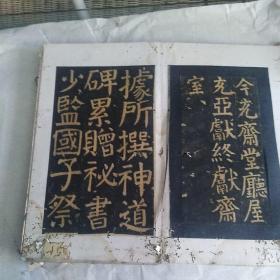 今充齋堂廳屋
充亞獻終獻齋
室
據所撰神道
碑累贈祕書
少監國子祭